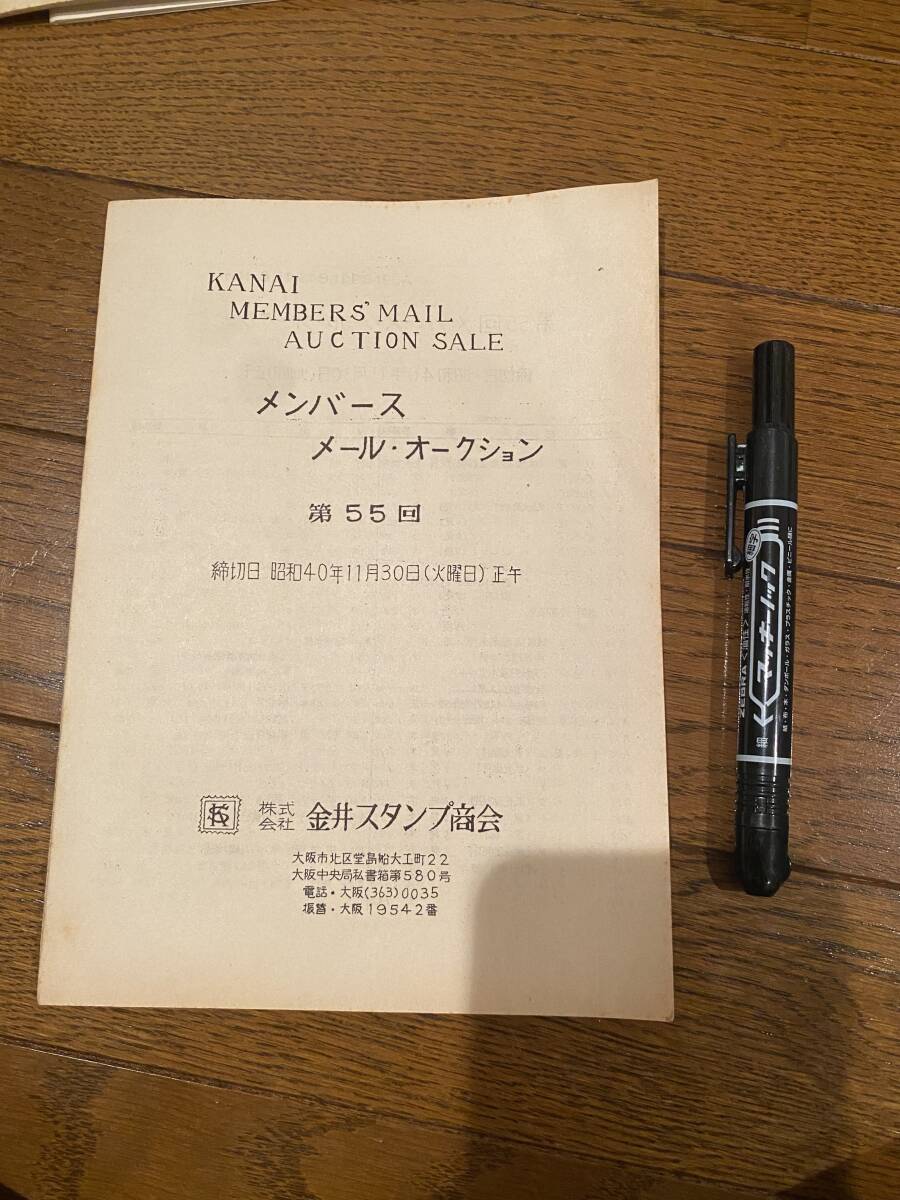 KANAI
MEMBERS' MAIL
AUCTION SALE
メンバース
メール・オークション
第55回
締切日 昭和40年11月30日(火曜日)正午
株式会社 金井スタンプ商会
大阪市北区堂島船大工町22
大阪中央局私書箱第580号
電話・大阪(363)0035
振替・大阪19542番
ZEBRA
<油性>
マッキーノック
紙・布・木・ダンボール・ガラス・プラスチック・金属・ビニール類に